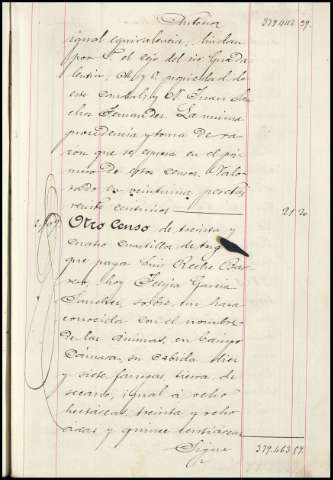 Anterior 379.442 39.
igual equivalencia; lindan
por S. el eje del rio Guada
lentin; N. y P. propiedad de
este caudal; y N. Juan
Fernandez. La misma
procedencia y toma de ra
zon que se espresa en el pri
mero de estos censos. Valo
rado en veintiuna pesetas
veinte centimos 21 20
Otro Censo de treinta y
cuatro cuartillas de trigo
que paga Luis Recho
hoy Felipa Garcia
Sanchez, sobre una haza
conocida con el nombre
de las Animas, en Campo
Cámara, su cabida diez
y siete fanegas tierra de
secano, igual á ocho
hectáreas, treinta y ocho
areas y quince centiáreas
Sigue 379.463 59.